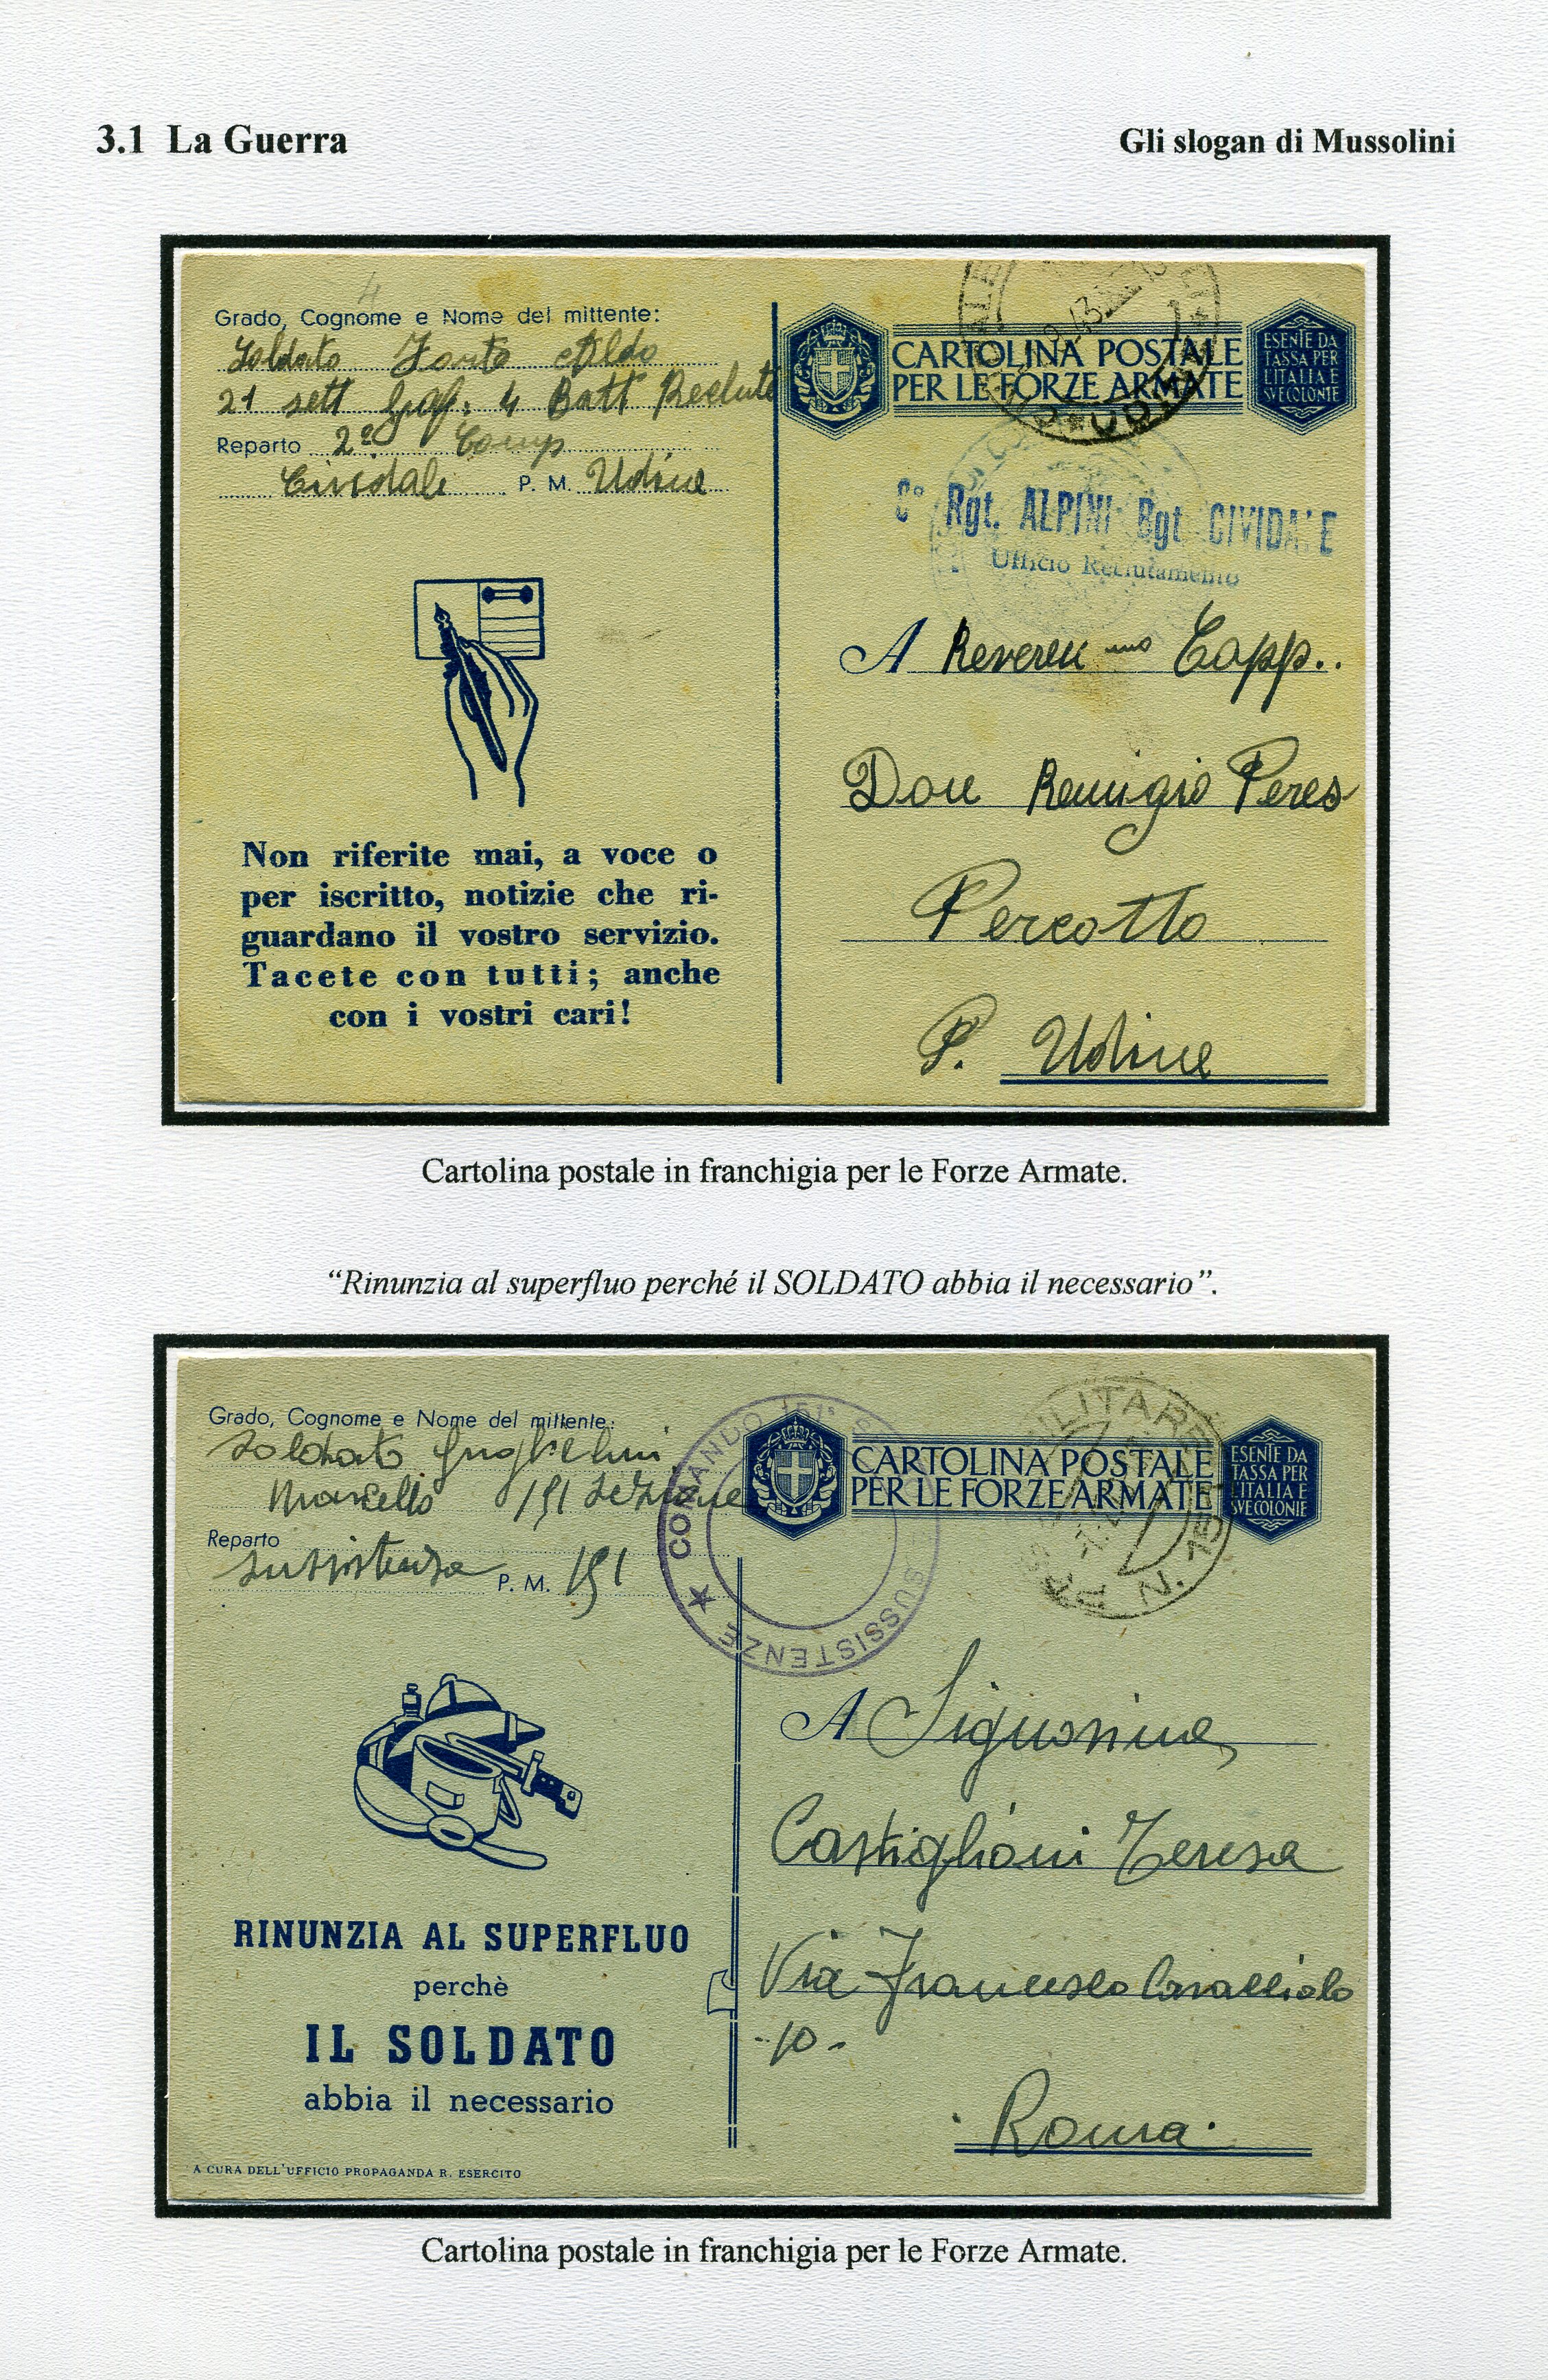 3.1 La Guerra
Gli slogan di Mussolini
Grado, Cognome e Nome del mittente:
Soldato Aldo
21 sett 4 Batt Reclute
Reparto 2ª Comp
Cividale P. M. Udine
CARTOLINA POSTALE
PER LE FORZE ARMATE
ESENTE DA
TASSA PER
L'ITALIA E
SVE COLONIE
8° Rgt. ALPINI Bgt CIVIDALE
Ufficio Reclutamento
A Reveren mo Capp..
Don Remigio Peres
Percotto
P. Udine
Non riferite mai, a voce o
per iscritto, notizie che ri-
guardano il vostro servizio.
Tacete con tutti; anche
con i vostri cari!
Cartolina postale in franchigia per le Forze Armate.
“Rinunzia al superfluo perché il SOLDATO abbia il necessario”.
Grado, Cognome e Nome del mittente:
Soldato Guglielmi
Marcello 151 Sezione
Reparto
sussistenza P. M. 151
COMANDO 151ª SUSSISTENZE
CARTOLINA POSTALE
PER LE FORZE ARMATE
ESENTE DA
TASSA PER
L'ITALIA E
SVE COLONIE
MILITARE N. 151
A Signorina
Castiglioni Teresa
Via Francesco
10
Roma
RINUNZIA AL SUPERFLUO
perchè
IL SOLDATO
abbia il necessario
A CURA DELL'UFFICIO PROPAGANDA R. ESERCITO
Cartolina postale in franchigia per le Forze Armate.